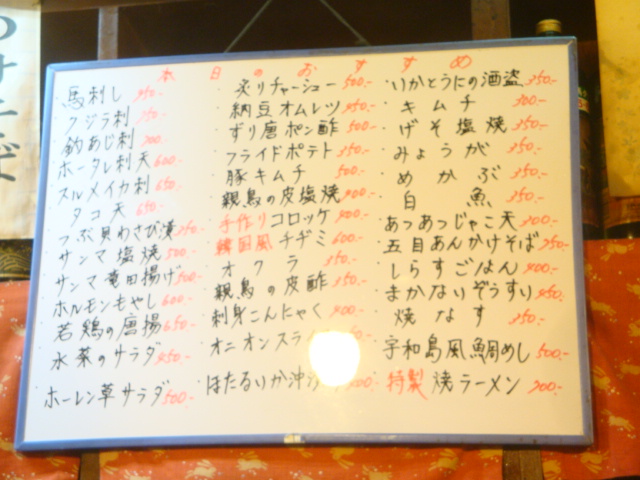 本日のおすすめ
馬刺し
クジラ刺
釣あじ刺 700
ホータレ刺天 600.-
スルメイカ刺 650.-
タコ天 650.-
つぶ貝わさび漬 350.-
サンマ塩焼 500.-
サンマ竜田揚げ 500.-
ホルモンもやし 600.-
若鶏の唐揚 650.-
水菜のサラダ 450.-
ホーレン草サラダ 500.-
炙りチャーシュー 500.-
納豆オムレツ 450.-
ずり唐ポン酢 500.-
フライドポテト 350.-
豚キムチ 500.-
親鳥の皮塩焼 400.-
手作りコロッケ 400.-
韓国風チヂミ 600.-
オクラ 350.-
親鳥の皮酢 350.-
刺身こんにゃく 400.-
オニオンスライ
ほたるいか沖
いかとうにの酒盗 350.-
キムチ 300.-
げそ塩焼 350.-
みょうが 350.-
めかぶ 350.-
白魚 350.-
あつあつじゃこ天 300.-
五目あんかけそば 750.-
しらすごはん 400.-
まかないぞうすい 450.-
焼なす 350.-
宇和島風鯛めし 500.-
特製焼ラーメン 700.-